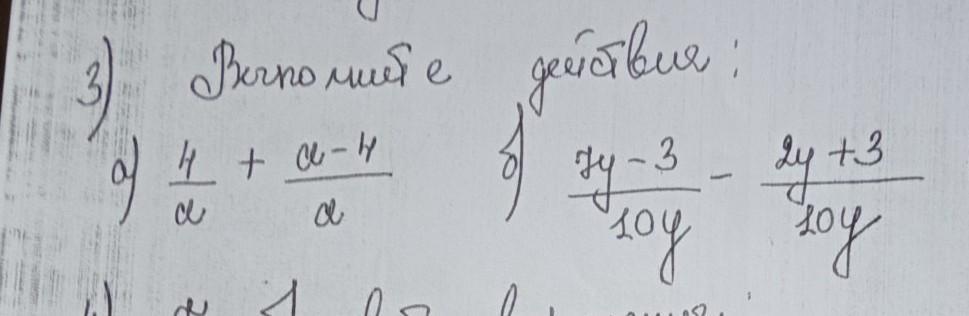 3) Выполните действия:
а) 4/a + a-4/a б) 7y-3/10y - 2y+3/10y